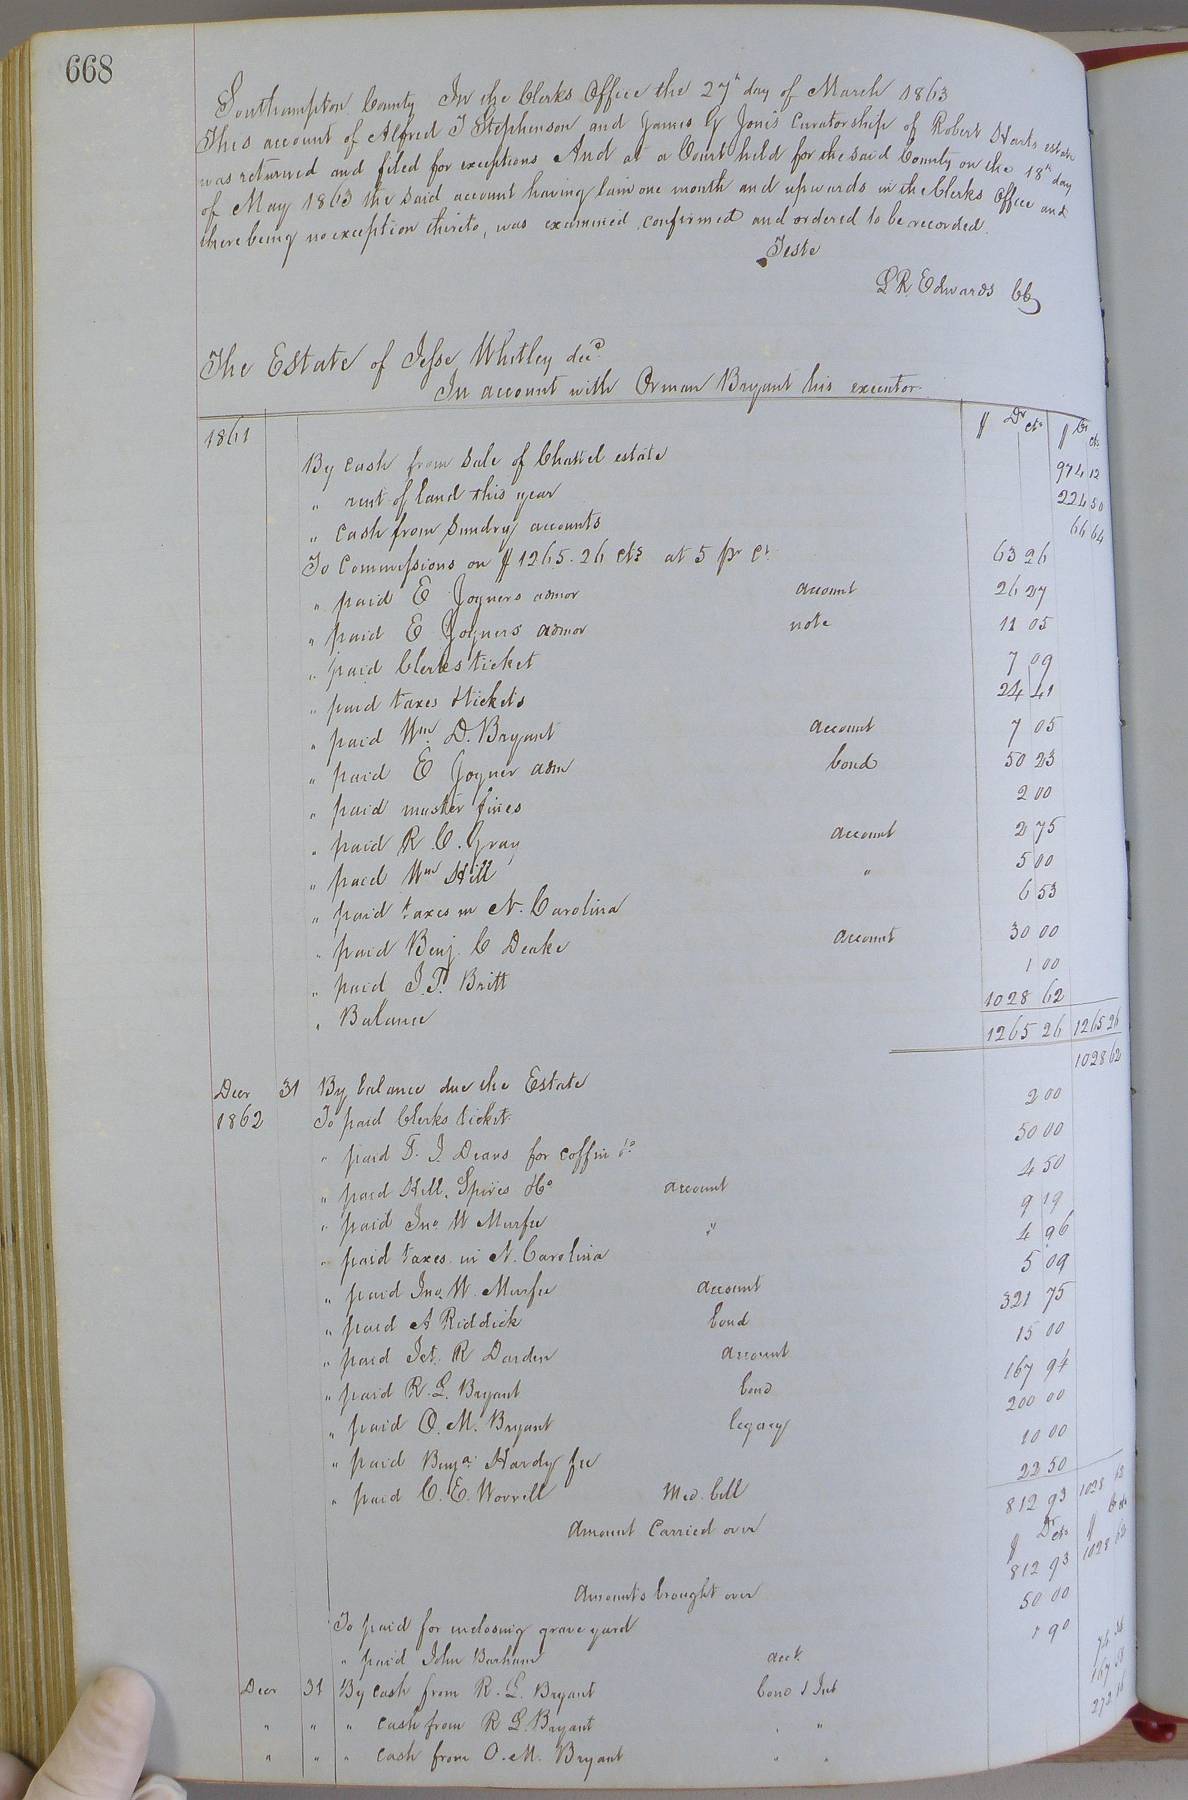 668
Southampton County In the Clerks Office the 27th day of March 1863
This account of Alfred J Stephenson and James G Jones Curatorship of Robert Harts estate
was returned and filed for exceptions And at a Court held for the said County on the 18th day
of May 1863 the said account having lain one month and upwards in the Clerks Office and
there being no exception thereto, was examined, confirmed and ordered to be recorded.
Teste
L R Edwards CC
The Estate of Jesse Whitley decd
In account with Orman Bryant his executor
1861 $ Dr cts $ Cr cts
By cash from sale of Chattel estate 974 12
" rent of land this year 224 50
" cash from Sundry accounts 66 64
To Commissions on $1265.26 cts at 5 pr ct 63 26
" paid E Joyners admor account 26 27
" paid E Joyners admor note 11 05
" paid Clerks ticket 7 09
" paid taxes tickets 24 41
" paid Wm D. Bryant account 7 05
" paid E Joyner adm bond 50 23
" paid muster fines 2 00
" paid R. C. Gray account 2 75
" paid Wm Hill " 5 00
" paid taxes in N. Carolina 6 53
" paid Benj. C Deake account 30 00
" paid J. T. Britt 1 00
" Balance 1028 62
1265 26 1265 26
Decr 31 By balance due the Estate 1028 62
1862 To paid Clerks ticket 2 00
" paid T. J. Deans for coffin 50 00
" paid Hill, Spires & Co account 4 50
" paid Jno. W Murfee " 9 19
" paid taxes in N. Carolina 4 96
" paid Jno. W. Murfee account 5 09
" paid A Riddick bond 321 75
" paid Jet. R Darden account 15 00
" paid R. L. Bryant bond 167 94
" paid O. M. Bryant legacy 200 00
" paid Benja Hardy fee 10 00
" paid C. E. Worrell Med. bill 22 50
Amount Carried over 812 93 1028 62
$ Dr cts $ Cr cts
Amounts brought over 812 93 1028 62
To paid for inclosing grave yard 50 00
" paid John Barham acct 90
Decr 31 By cash from R. L. Bryant bond & Int
" " " cash from R L. Bryant " " 167
" " " cash from O. M. Bryant " " 272